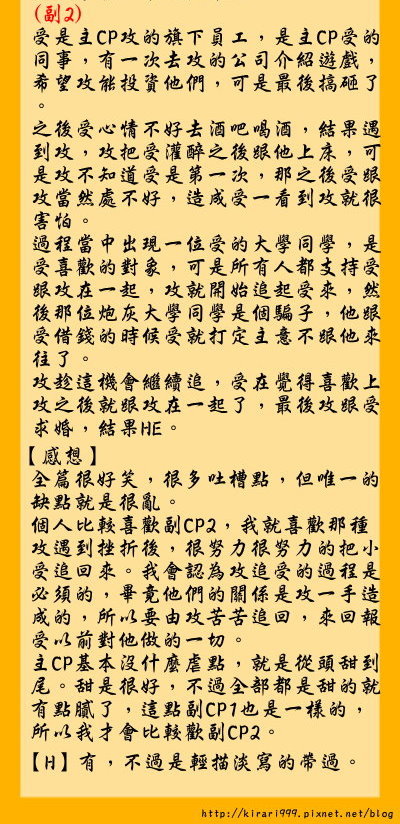 (副2)
受是主CP攻的旗下員工，是主CP受的
同事，有一次去攻的公司介紹遊戲，
希望攻能投資他們，可是最後搞砸了
。
之後受心情不好去酒吧喝酒，結果遇
到攻，攻把受灌醉之後跟他上床，可
是攻不知道受是第一次，那之後受跟
攻當然處不好，造成受一看到攻就很
害怕。
過程當中出現一位受的大學同學，是
受喜歡的對象，可是所有人都支持受
跟攻在一起，攻就開始追起受來，然
後那位炮灰大學同學是個騙子，他跟
受借錢的時候受就打定主意不跟他來
往了。
攻趁這機會繼續追，受在覺得喜歡上
攻之後就跟攻在一起了，最後攻跟受
求婚，結果HE。
【感想】
全篇很好笑，很多吐槽點，但唯一的
缺點就是很亂。
個人比較喜歡副CP2，我就喜歡那種
攻遇到挫折後，很努力很努力的把小
受追回來。我會認為攻追受的過程是
必須的，畢竟他們的關係是攻一手造
成的，所以要由攻苦苦追回，來回報
受以前對他做的一切。
主CP基本沒什麼虐點，就是從頭甜到
尾。甜是很好，不過全部都是甜的就
有點膩了，這點副CP1也是一樣的，
所以我才會比較歡副CP2。
【H】有，不過是輕描淡寫的帶過。
http://kirari999.pixnet.net/blog